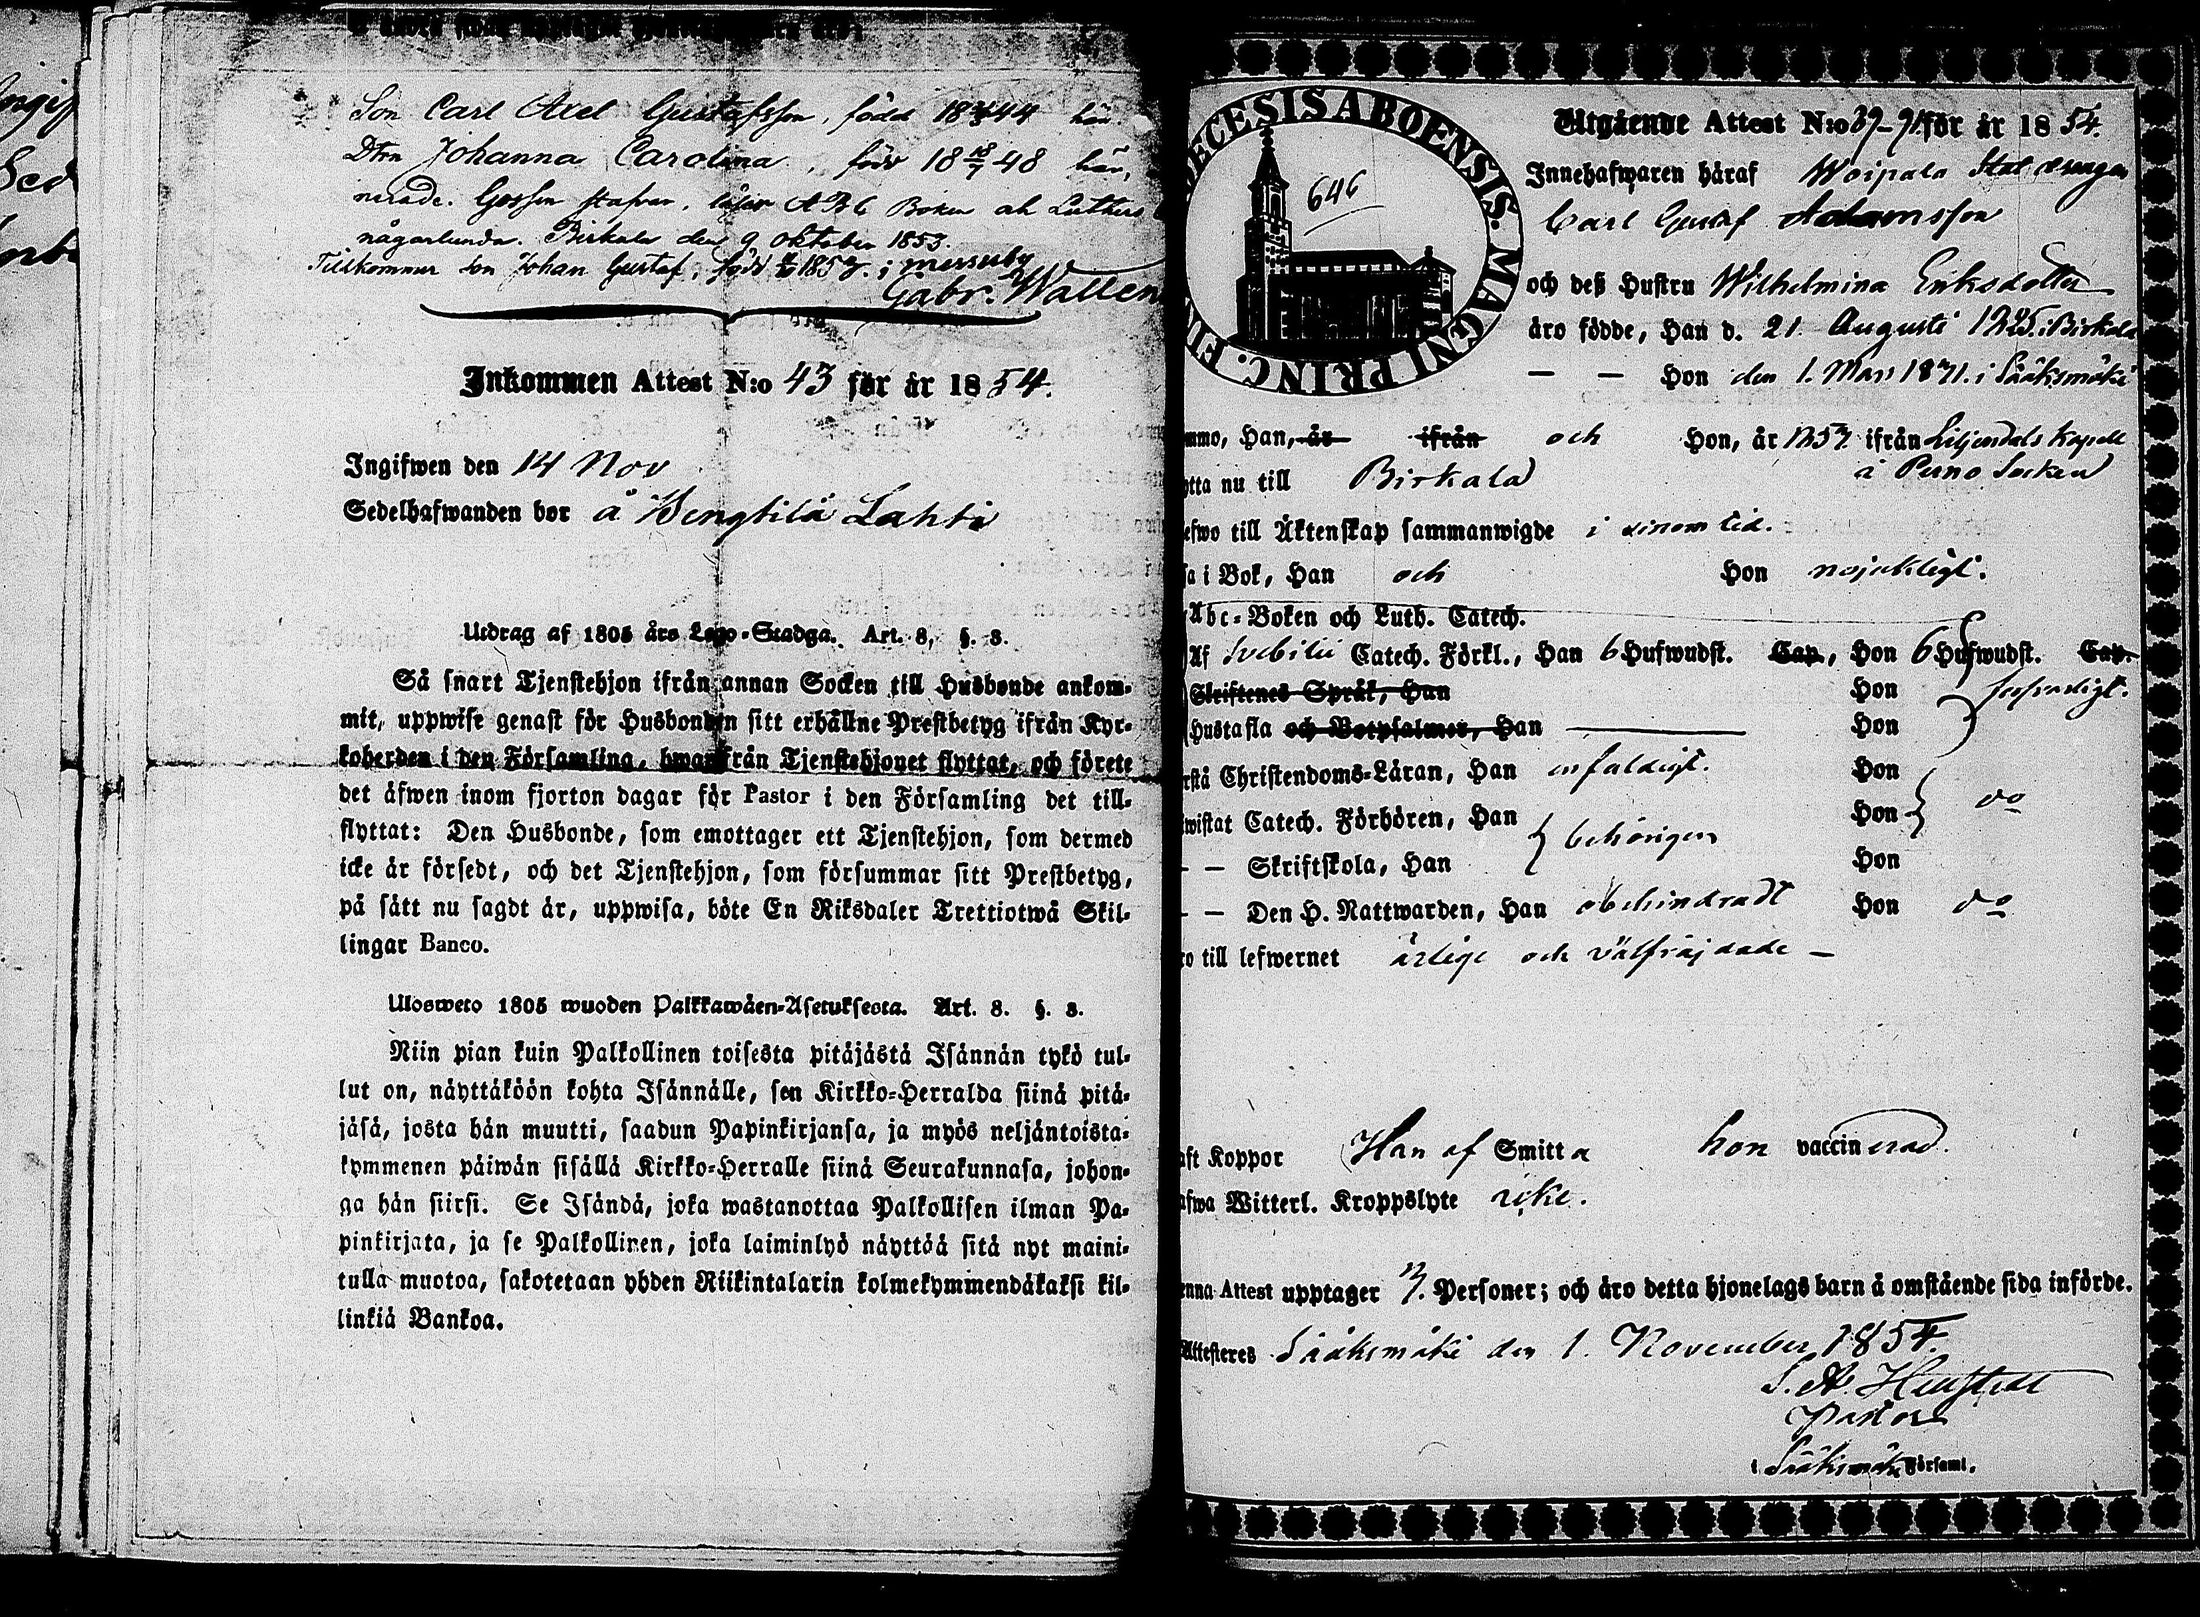 Son Carl Axel Gustafsson, född 18 44 här.
Dtrn Johanna Carolina, född 18 18/7 48 här,
nerade. Gossen stafvar, läser ABC Boken ock Luthers
någorlunda. Birkala den 9 oktober 1853.
Tillkommer son Johan Gustaf, född 1853. i messuby
Gabr. Wallen
Inkommen Attest N:o 43 för år 1854.
Ingifwen den 14 Nov
Sedelhafwanden bor å Wengtilä Lahti
Utdrag af 1805 års Lego-Stadga. Art. 8, §. 3.
Så snart Tjenstehjon ifrån annan Socken till Husbonde ankom-
mit, uppwise genast för Husbonden sitt erhållne Prestbetyg ifrån Kyr-
koherden i den Församling, hwarifrån Tjenstehjonet flyttat, och förete
det äfwen inom fjorton dagar för Pastor i den Församling det till-
flyttat: Den Husbonde, som emottager ett Tjenstehjon, som dermed
icke är försedt, och det Tjenstehjon, som försummar sitt Prestbetyg,
på sätt nu sagdt är, uppwisa, böte En Riksdaler Trettiotwå Skil-
lingar Banco.
Ulosweto 1805 wuoden Palkkawäen-Asetuksesta. Art. 8. §. 3.
Niin pian kuin Palkollinen toisesta pitäjästä Isännän tykö tul-
lut on, näyttäköön kohta Isännälle, sen Kirkko-Herralda siinä pitä-
jäsä, josta hän muutti, saadun Papinkirjansa, ja myös neljäntoista-
kymmenen päiwän sisällä Kirkko-Herralle siinä Seurakunnasa, johon-
ga hän siirsi. Se Isändä, joka wastanottaa Palkollisen ilman Pa-
pinkirjata, ja se Palkollinen, joka laiminlyö näyttää sitä nyt maini-
tulla muotoa, sakotetaan yhden Riikintalarin kolmekymmendäkaksi kil-
linkiä Bankoa.
ECESIS ABOENSIS. MAGNI PRINC. FI
646
Utgående Attest N:o 39-91 för år 1854.
Innehafwaren häraf Woipala
Carl Gustaf Adamsson
och deß Hustru Wilhelmina Eriksdotter
äro födde, Han d. 21 Augusti 1825. i Birkala
— — Hon den 1. Mars i Sääksmäki
mmo, Han, är ifrån och Hon, år 1853 ifrån Liljendals Kapell
å Perno Socken
ytta nu till Birkala
efwo till Äktenskap sammanwigde i sinom tid.
sa i Bok, Han och Hon nöjaktligt.
Abc-Boken och Luth. Catech.
Af Svebilii Catech. Förkl., Han 6 Hufwudst. Cap., Hon 6 Hufwudst. Cap.
Skriftenes Språk, Han Hon
Hustafla och Botpsalmer, Han — Hon
rstå Christendoms-Läran, Han enfaldigt. Hon
wistat Catech. Förhören, Han Hon do
— — Skriftskola, Han behörigen Hon
— — Den H. Nattwarden, Han obehindradt Hon do
ro till lefwernet ärlige och välfräjdade —
aft Koppor Han af Smitta hon vaccinerad.
afwa Witterl. Kroppslyte icke.
enna Attest upptager Personer; och äro detta hjonelags barn å omstående sida införde.
Attesteres Sääksmäki den 1. November 1854.
Pastor
i Sääksmäki Församl.